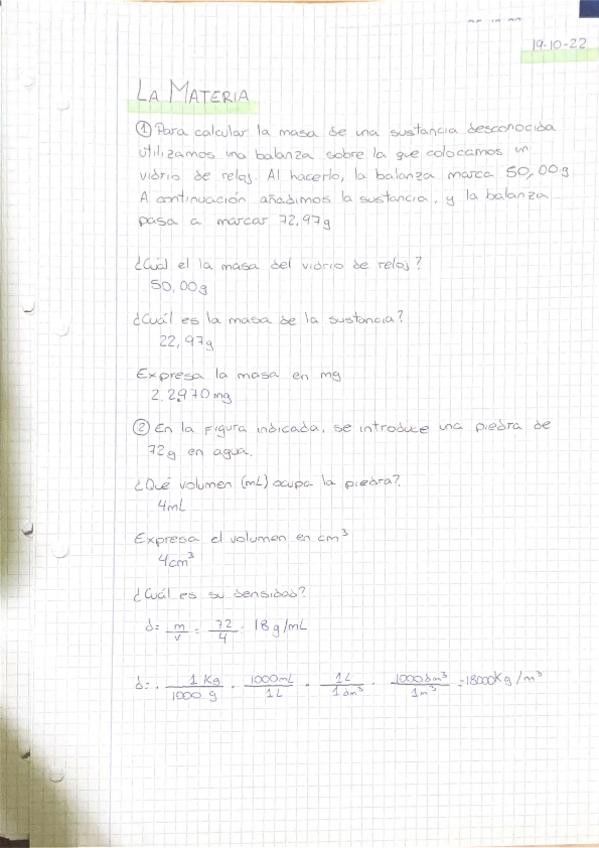 19-10-22
LA MATERIA
① Para calcular la masa de una sustancia desconocida
utilizamos una balanza sobre la que colocamos un
vidrio de reloj. Al hacerlo, la balanza marca 50,00g
A continuación añadimos la sustancia, y la balanza
pasa a marcar 72,97g
¿Cuál el la masa del vidrio de reloj?
50,00g
¿Cuál es la masa de la sustancia?
22,97g
Expresa la masa en mg
2.2970mg
② En la figura indicada, se introduce una piedra de
72g en agua.
¿Qué volumen (mL) ocupa la piedra?
4mL
Expresa el volumen en cm³
4cm³
¿Cuál es su densidad?
d= m/v = 72/4 · 18 g/mL
d= · 1 Kg/1000 g · 1000mL/1L · 1L/1dm³ · 1000dm³/1m³ =18000Kg/m³